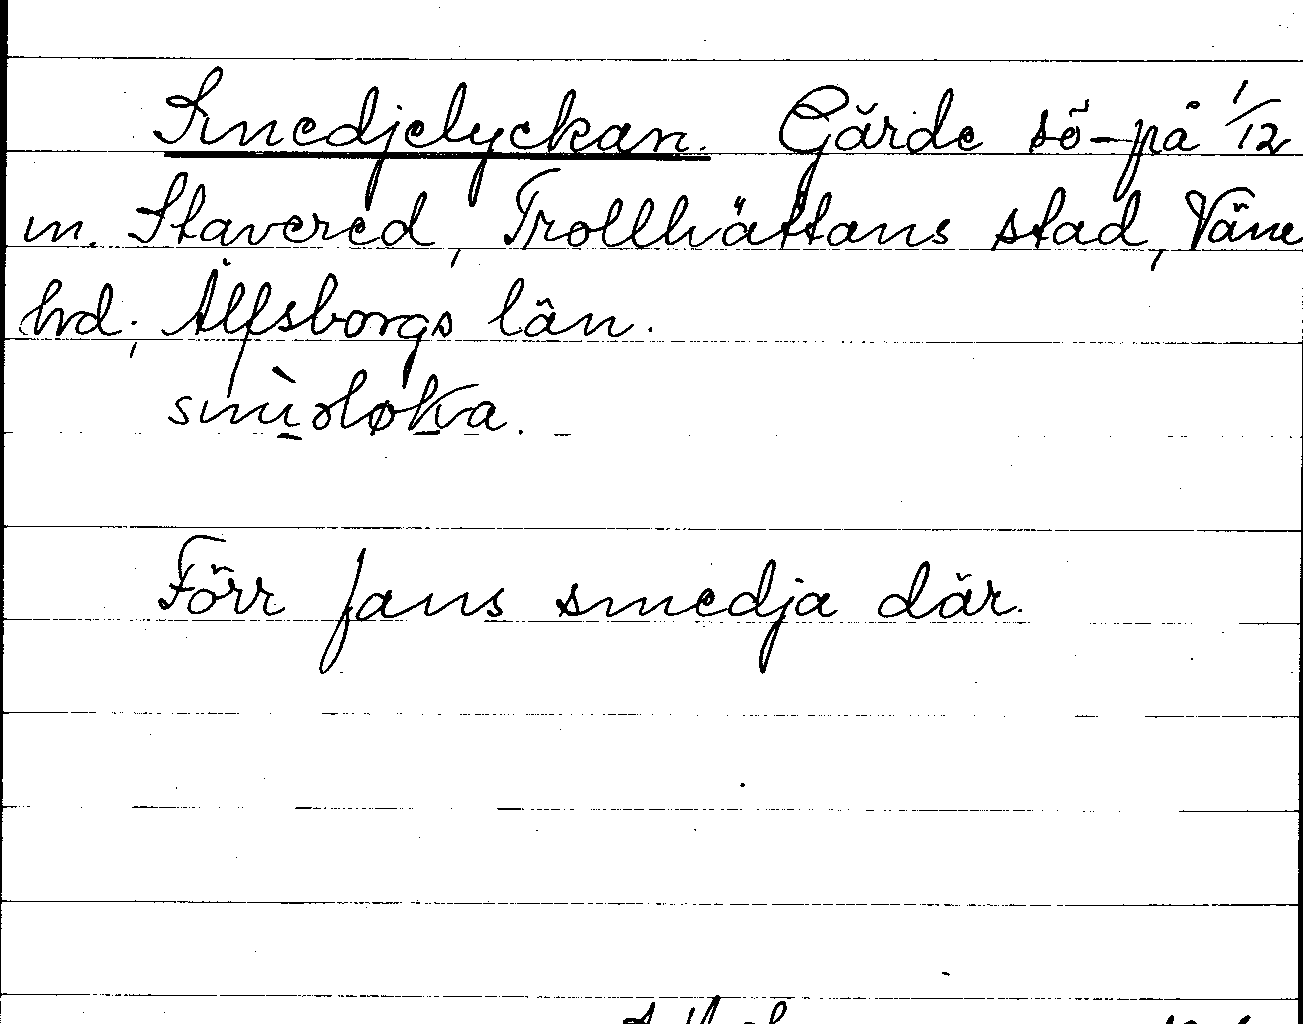 Smedjelyckan. Gärde sö-på 1/12
m. Stavered, Trollhättans stad, Väne
hd; Älfsborgs län.
smìəløka.
Förr fans smedja där.